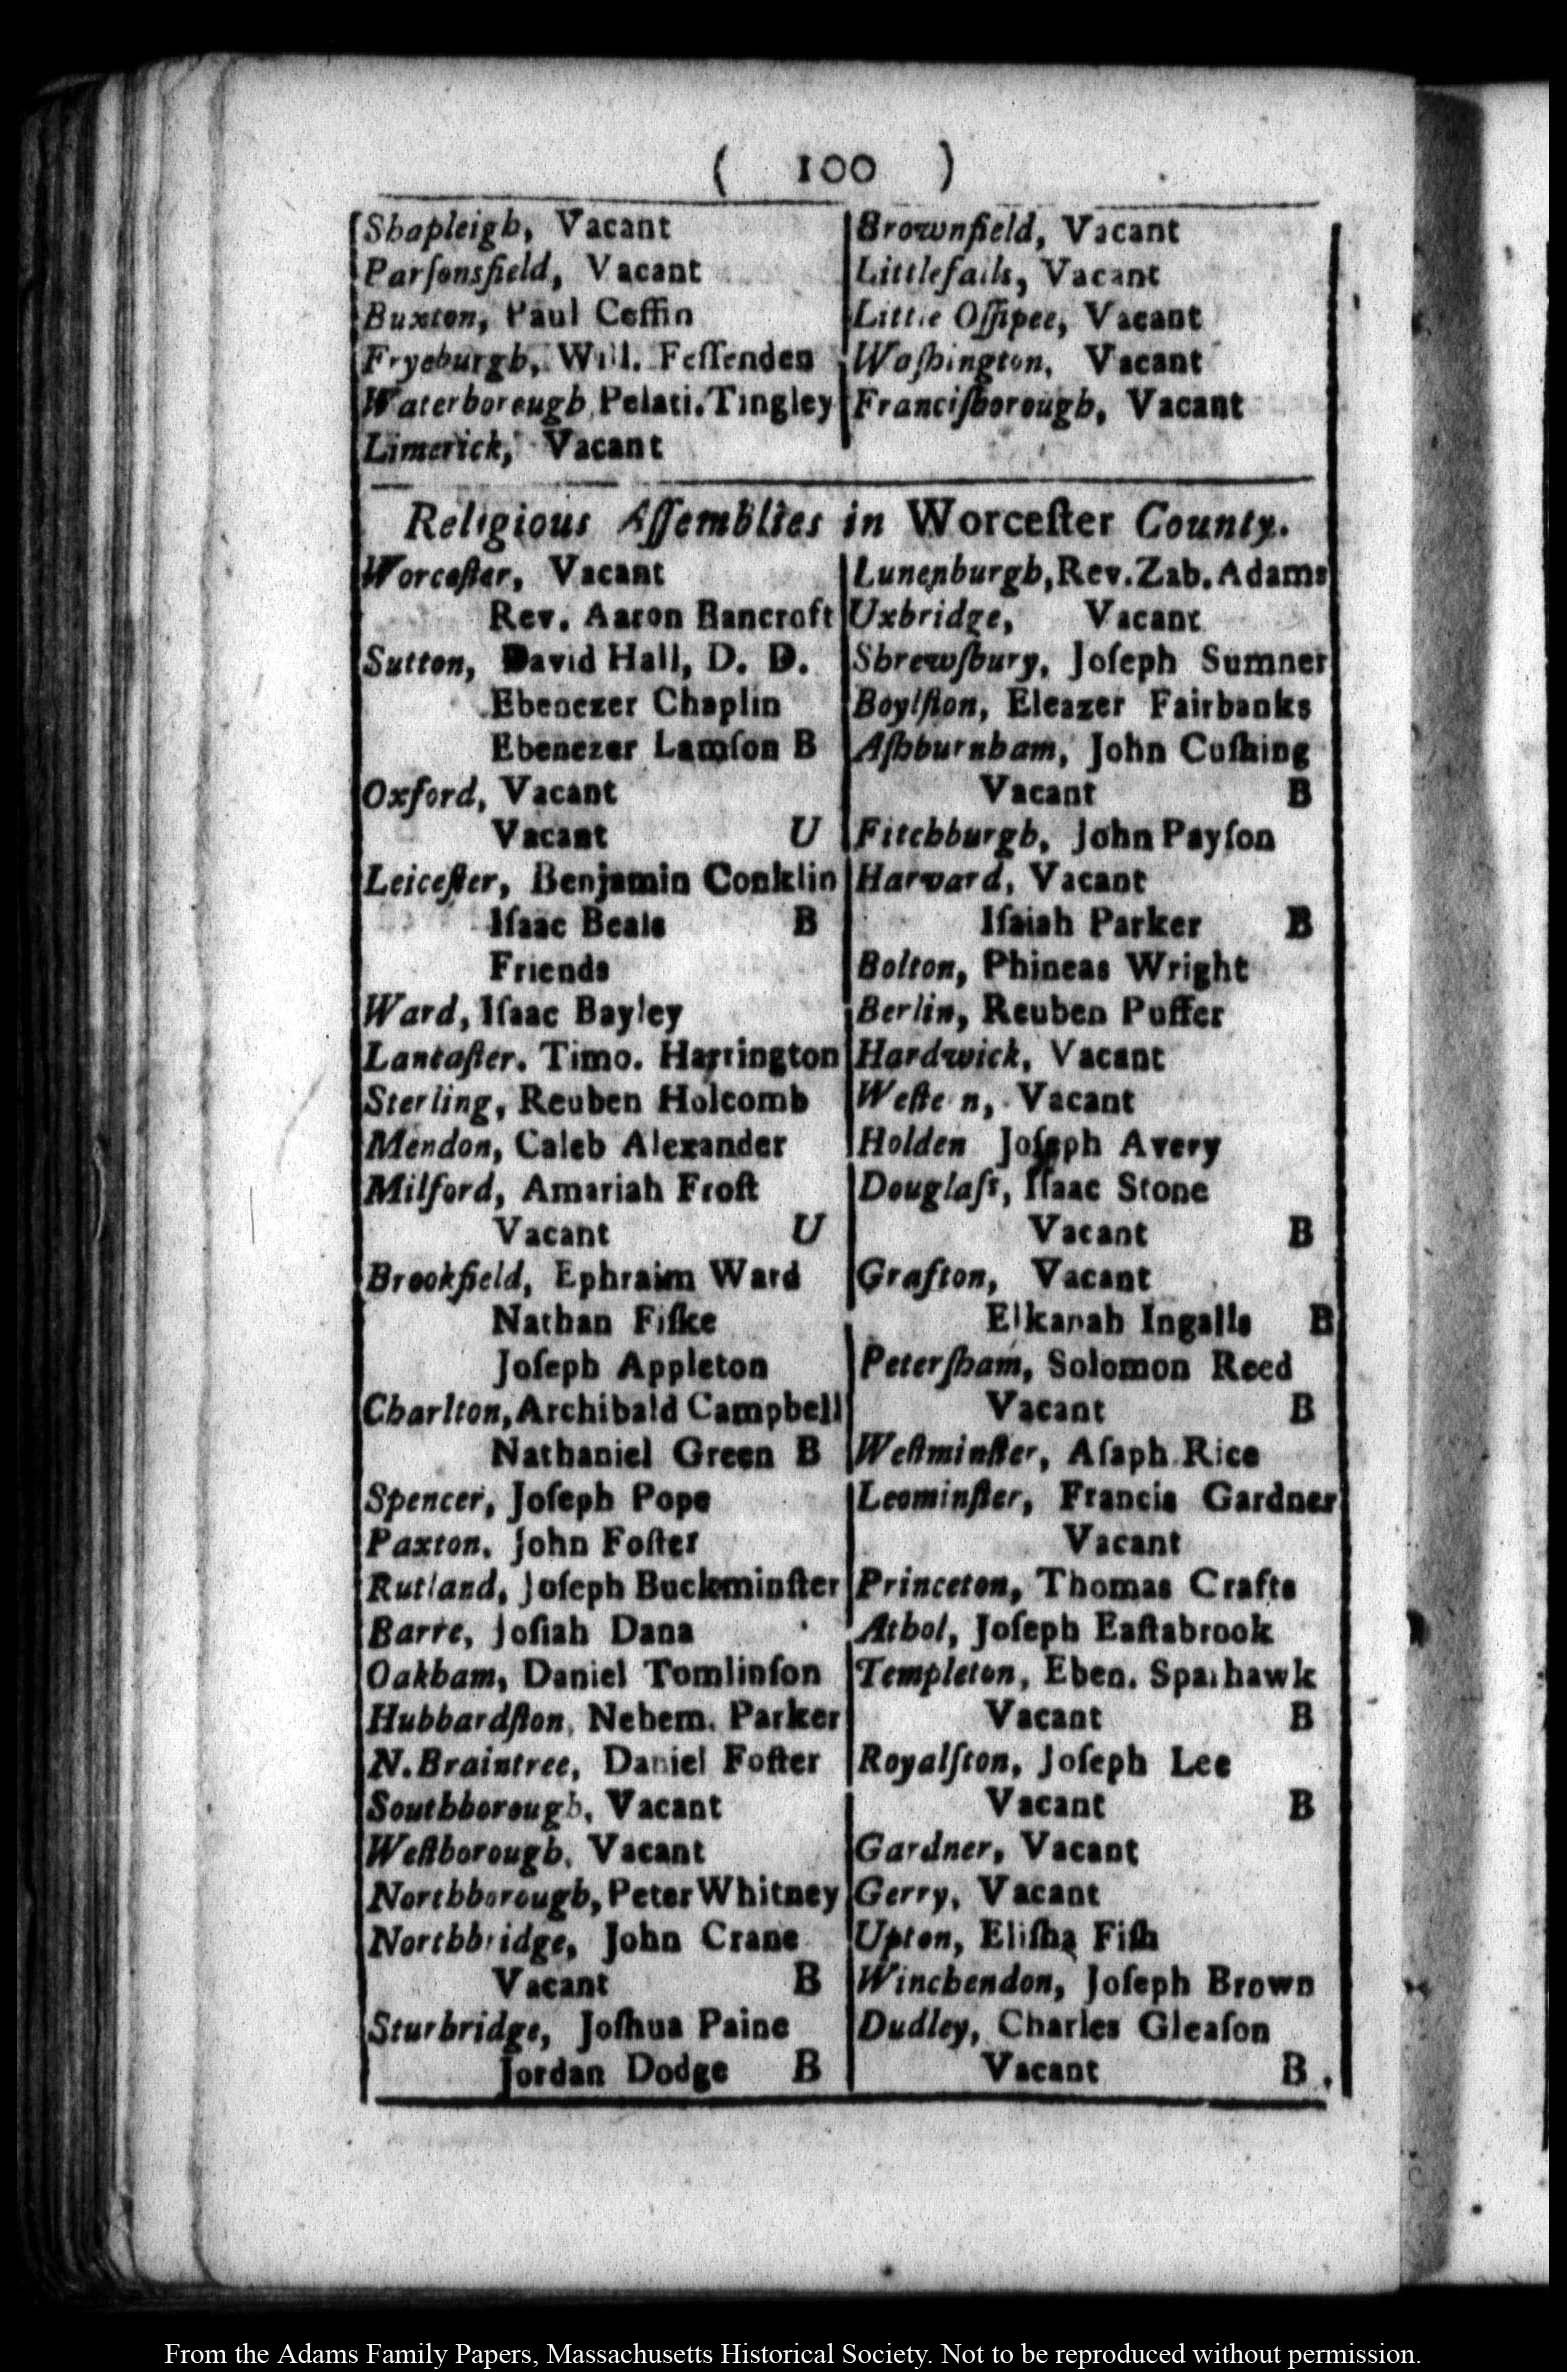 ( 100 )
Shapleigh, Vacant
Parſonsfield, Vacant
Buxton, Paul Coffin
Fryeburgh, Will. Feſſenden
Waterborough, Pelati. Tingley
Limerick, Vacant
Brownfield, Vacant
Littlefalls, Vacant
Little Oſſipee, Vacant
Waſhington, Vacant
Franciſborough, Vacant
Religious Aſſemblies in Worceſter County.
Worceſter, Vacant
Rev. Aaron Bancroft
Sutton, David Hall, D. D.
Ebenezer Chaplin
Ebenezer Lamſon B
Oxford, Vacant
Vacant U
Leiceſter, Benjamin Conklin
Iſaac Beals B
Friends
Ward, Iſaac Bayley
Lancaſter. Timo. Harrington
Sterling, Reuben Holcomb
Mendon, Caleb Alexander
Milford, Amariah Froſt
Vacant U
Brookfield, Ephraim Ward
Nathan Fiſke
Joſeph Appleton
Charlton, Archibald Campbell
Nathaniel Green B
Spencer, Joſeph Pope
Paxton, John Foſter
Rutland, Joſeph Buckminſter
Barre, Joſiah Dana
Oakham, Daniel Tomlinſon
Hubbardſton, Nehem. Parker
N. Braintree, Daniel Foſter
Southborough, Vacant
Weſtborough, Vacant
Northborough, Peter Whitney
Northbridge, John Crane
Vacant B
Sturbridge, Joſhua Paine
Jordan Dodge B
Lunenburgh, Rev. Zab. Adams
Uxbridge, Vacant
Shrewſbury, Joſeph Sumner
Boylſton, Eleazer Fairbanks
Aſhburnham, John Cuſhing
Vacant B
Fitchburgh, John Payſon
Harvard, Vacant
Iſaiah Parker B
Bolton, Phineas Wright
Berlin, Reuben Puffer
Hardwick, Vacant
Weſte n, Vacant
Holden Joſeph Avery
Douglaſs, Iſaac Stone
Vacant B
Grafton, Vacant
Elkanah Ingalls B
Peterſham, Solomon Reed
Vacant B
Weſtminſter, Aſaph Rice
Leominſter, Francis Gardner
Vacant
Princeton, Thomas Crafts
Athol, Joſeph Eaſtabrook
Templeton, Eben. Sparhawk
Vacant B
Royalſton, Joſeph Lee
Vacant B
Gardner, Vacant
Gerry, Vacant
Upton, Eliſha Fiſh
Winchendon, Joſeph Brown
Dudley, Charles Gleaſon
Vacant B.
From the Adams Family Papers, Massachusetts Historical Society. Not to be reproduced without permission.